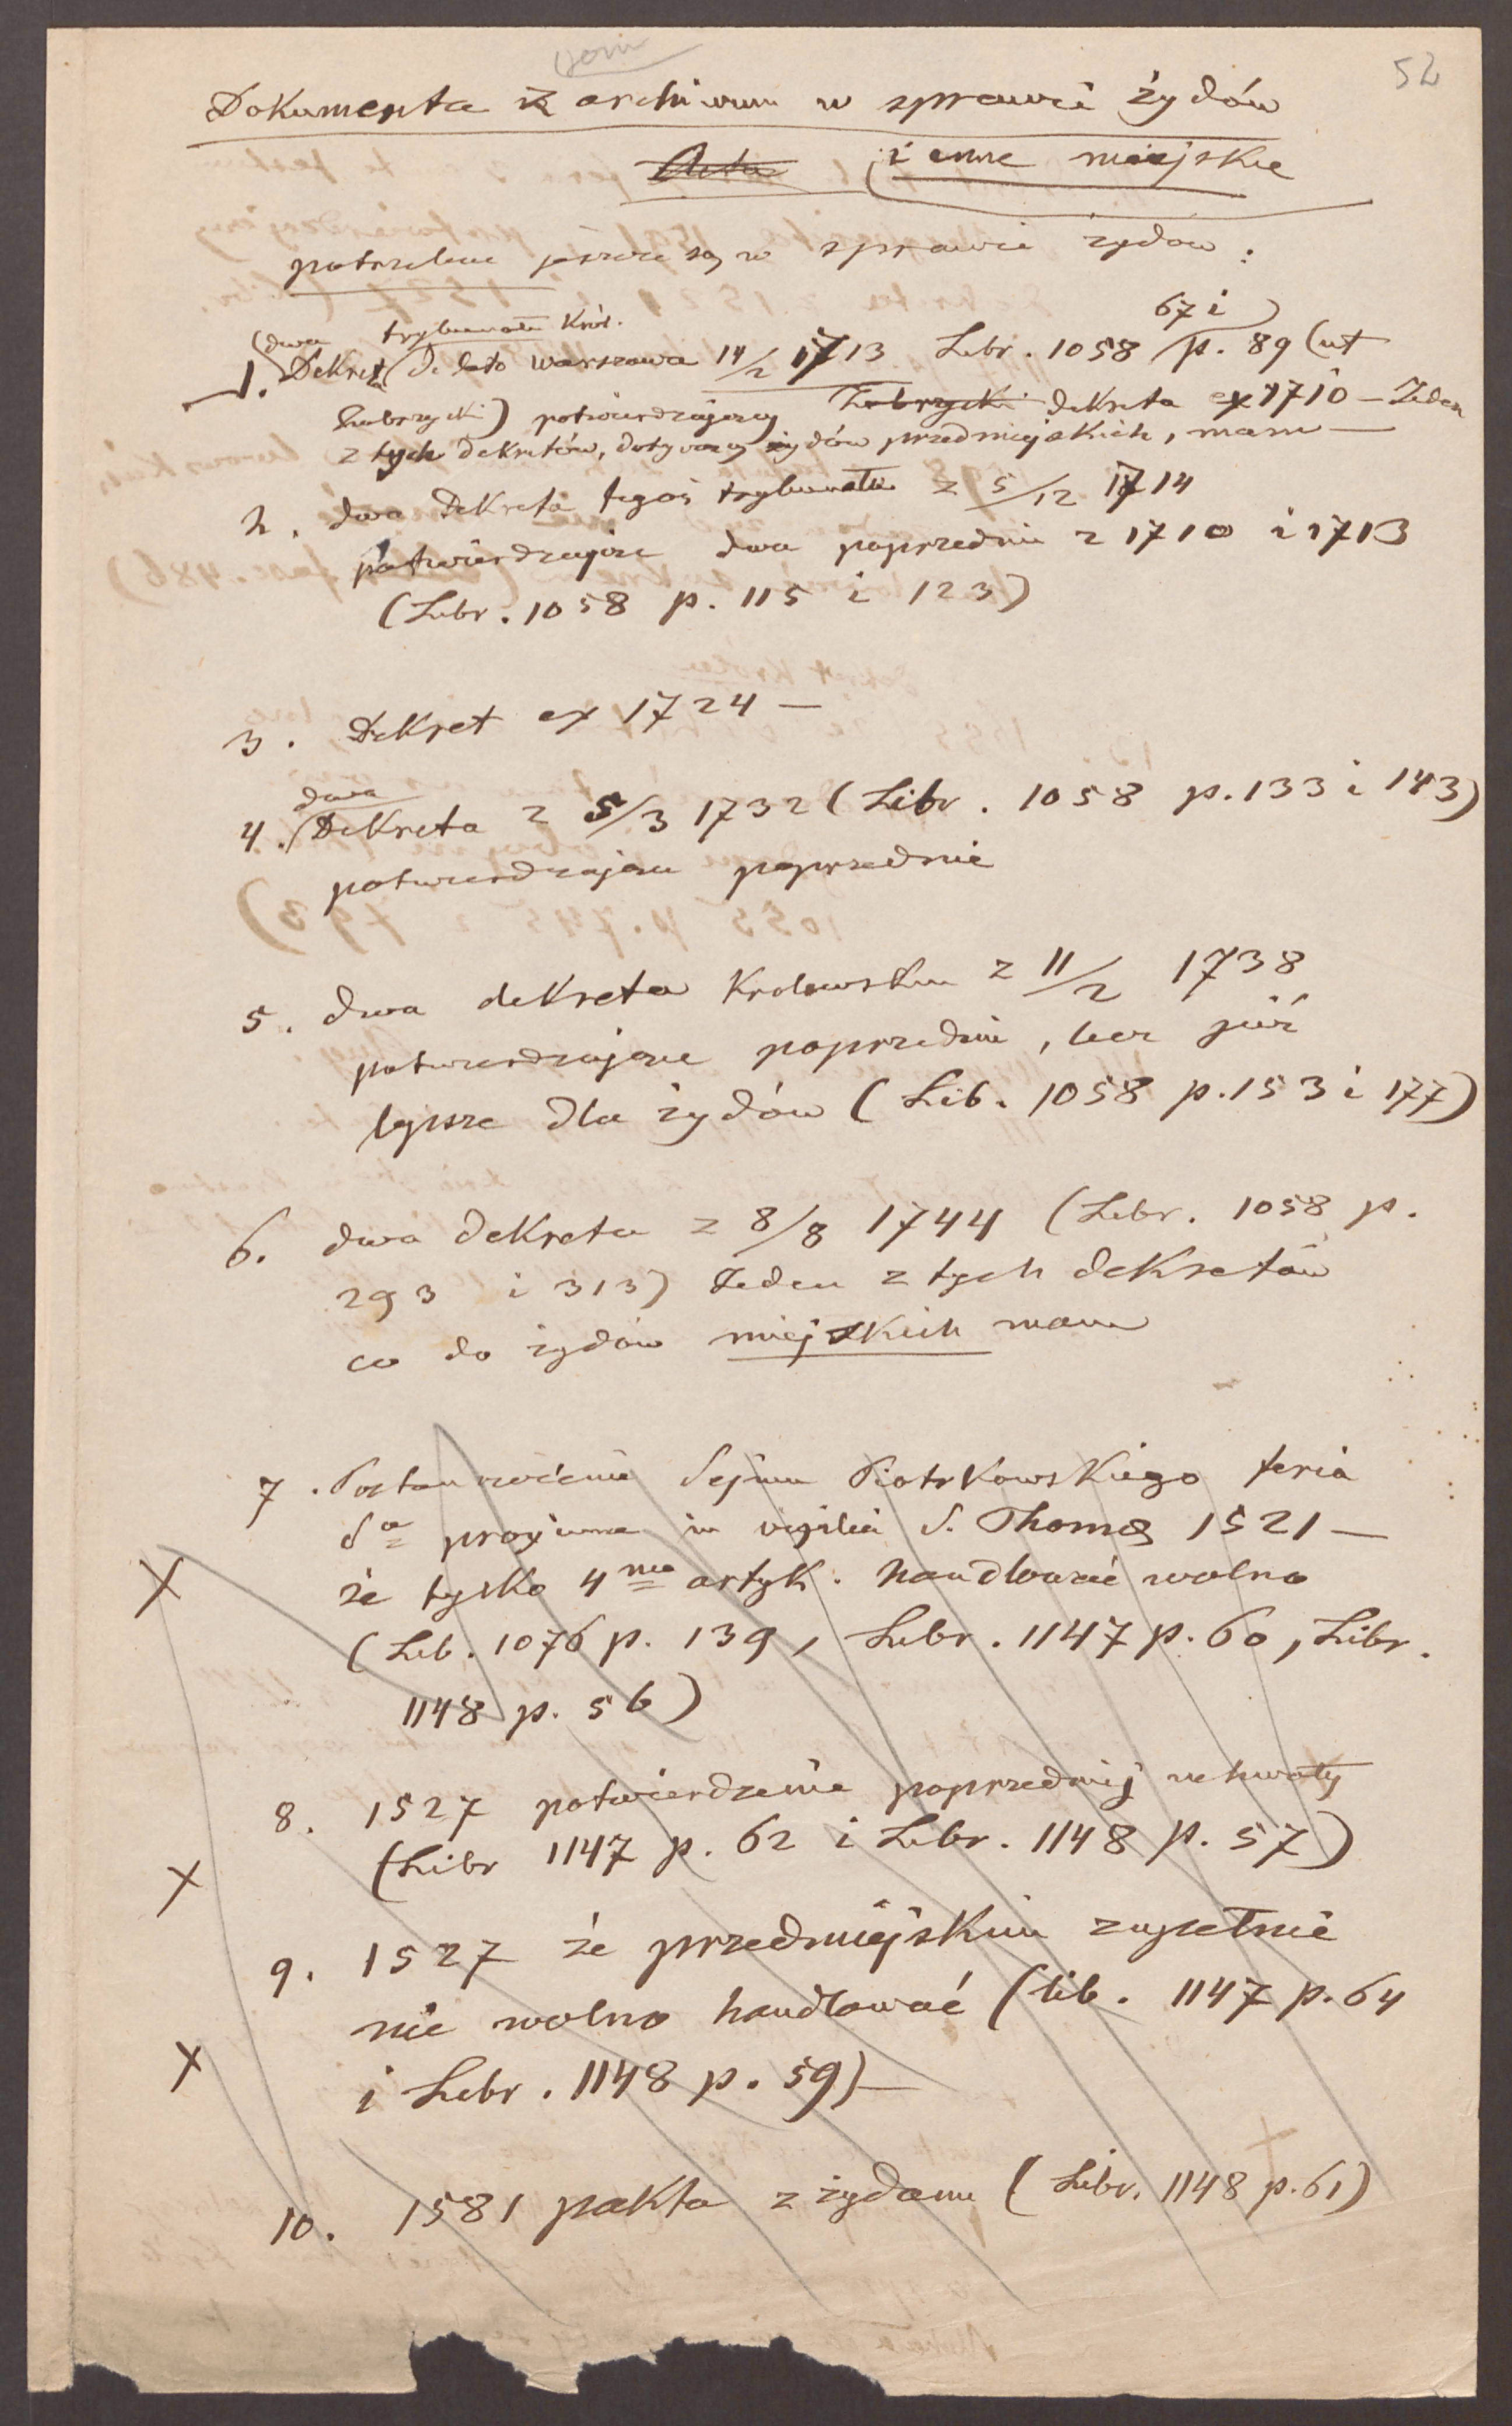 52
Dokumenta z archiwum w sprawie żydów
Acta i inne miejskie
potrzebne jeszcze są w sprawie żydów :
67 i
dwa trybunału Król.
1. Dekreta de dato Warszawa 14/2 1713 Libr. 1058 p. 89 (ut
Zubrzycki) potwierdzający Zubrzycki dekreta ex 1710 — Jeden
z tych dekretów, dotyczący żydów przedmiejskich, mam —
2. dwa dekreta tegoż trybunału z 5/12 1714
potwierdzające dwa poprzednie z 1710 i 1713
(Libr. 1058 p. 115 i 123)
3. Dekret ex 1724 —
dwa
4. Dekreta z 5/3 1732 (Libr. 1058 p. 133 i 143)
potwierdzające poprzednie
5. dwa dekreta Krolewskie z 11/2 1738
potwierdzające poprzednie, lecz już
lepsze dla żydów (Lib. 1058 p. 153 i 177)
6. dwa dekreta z 8/8 1744 (Libr. 1058 p.
293 i 313) Jeden z tych dekretów
co do żydów miejskich mam
7. Postanowienie Sejmu Piotrkowskiego feria
proxima in vigilia S. Thomae 1521 —
że tylko 4ma artyk. handlować wolno
(Lib. 1076 p. 139, Libr. 1147 p. 60, Libr.
1148 p. 56)
8. 1527 potwierdzenie poprzedniej uchwały
(Libr 1147 p. 62 i Libr. 1148 p. 57)
9. 1527 że przedmiejskim zupełnie
nie wolno handlować (lib. 1147 p. 64
i Libr. 1148 p. 59) —
10. 1581 pakta z żydami (Libr. 1148 p. 61)